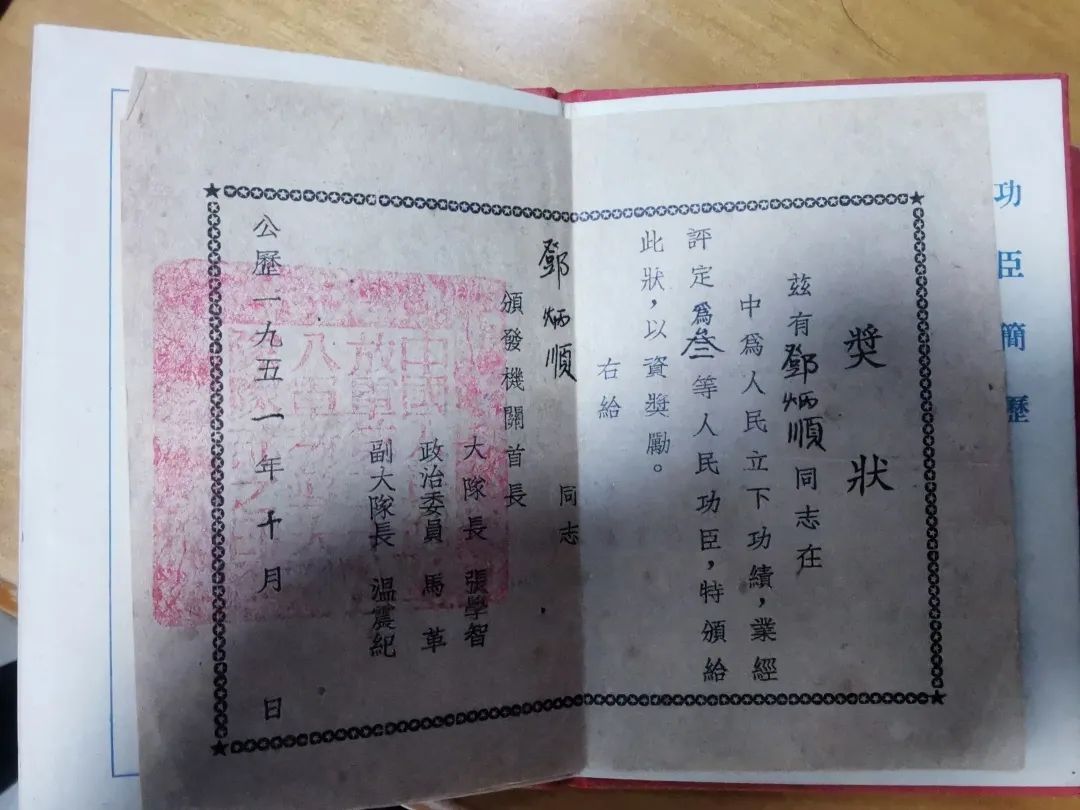 功臣簡歷
奬狀
茲有鄧炳順同志在
中爲人民立下功績，業經
評定爲叁等人民功臣，特頒給
此狀，以資奬勵。
右給
鄧炳順同志
頒發機關首長
大隊長 張學智
政治委員 馬革
副大隊長 溫震紀
公歷一九五一年十月 日